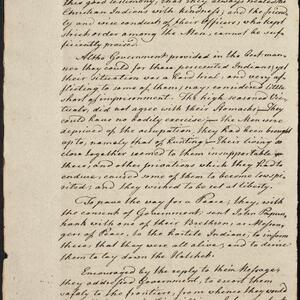 this good testimony, that they always treated the
Christian Indians with kindness; and the friend-
ly and wise conduct of their Officers, who kept
strict order among the Men, cannot be suf-
ficiently praised.
Altho' Government provided in the best man-
ner they could, for these persecuted Indians, yet
their situation was a hard trial, and very af-
flicting to some of them; nay, considered little
short of imprisonment. The high seasoned Vic-
tuals, did not agree with their Stomachs; They
could have no bodily exercise; the Men were
deprived of the occupation, they had been brought
up to, namely that of Hunting. Their living so
close together seemed to them insupportable;
these, and other hardships which they had to
endure, caused some of them to become low spi-
rited; and they wished to be set at liberty.
To pave the way for a Peace; they, with
the consent of Government, sent John Papun-
hank with one of their Brethren, as Messen-
gers of Peace, to the hostile Indians; to inform
these, that they were all alive; and to desire
them to lay down the Hatchet.
Encouraged by the reply to their Messages
they addressed Government, to escort them
safely to the frontiers, from whence they would